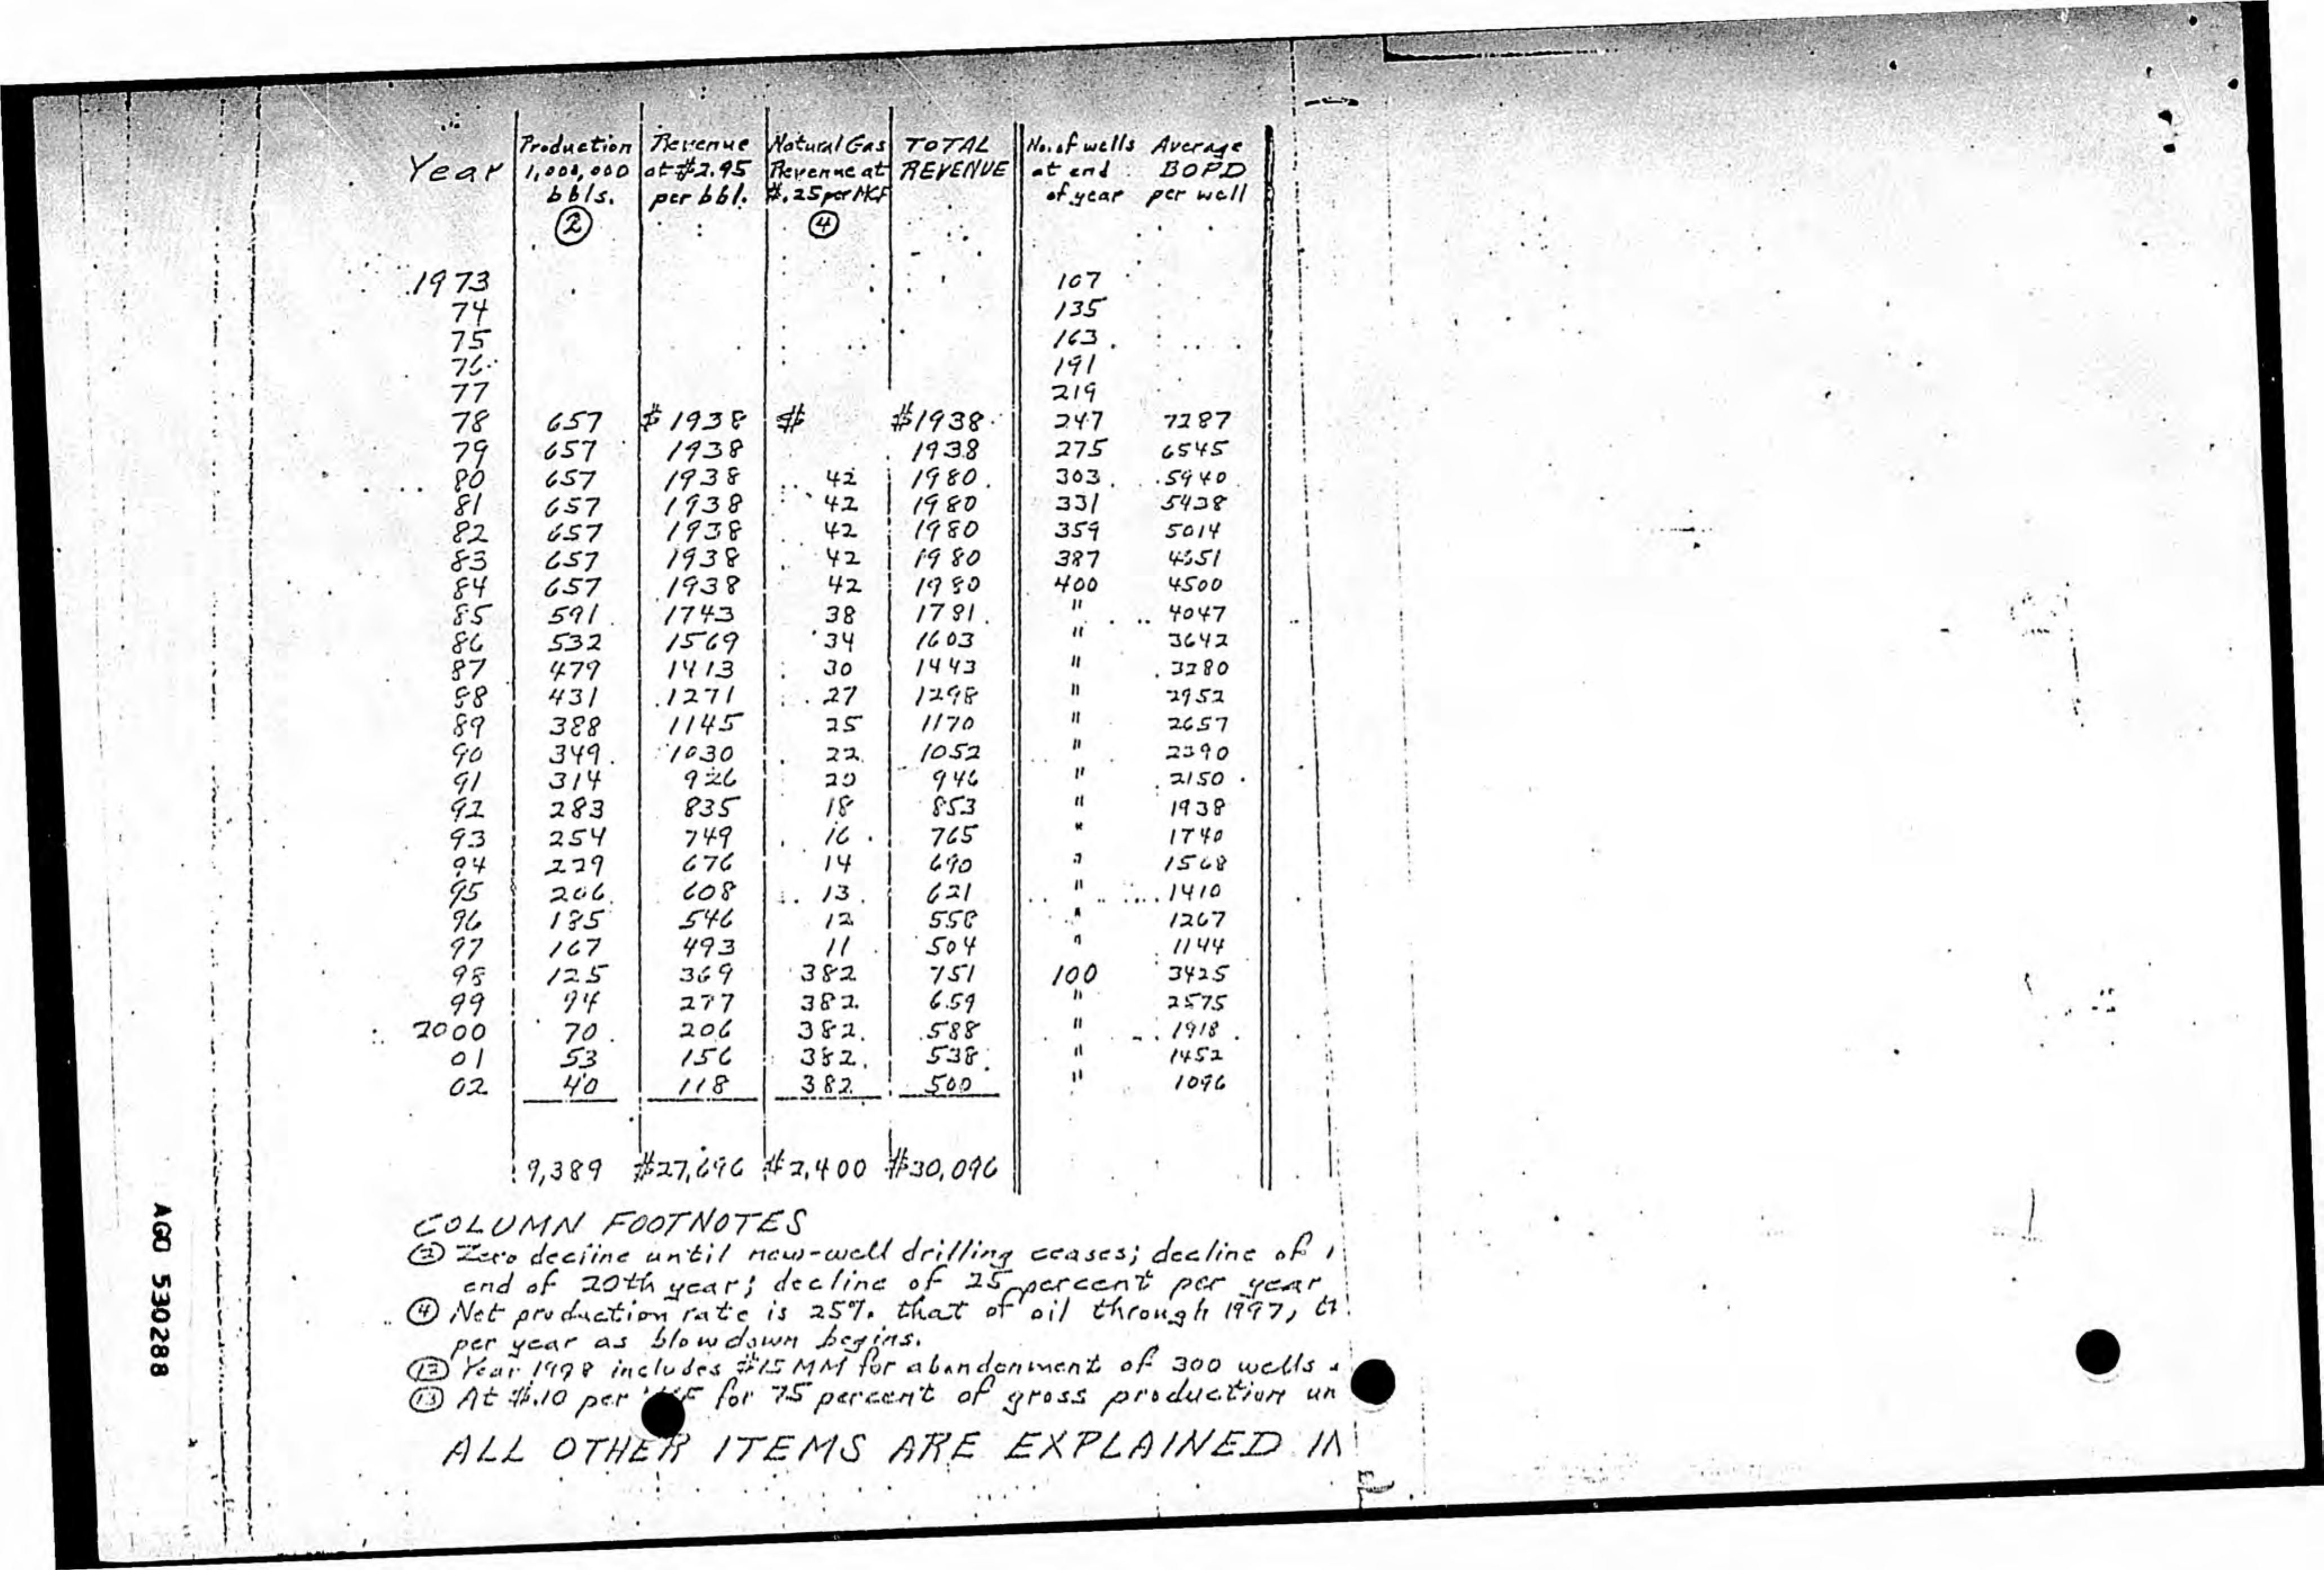 Year Production Revenue Natural Gas TOTAL No. of wells Average
1,000,000 at $2.95 Revenue at REVENUE at end BOPD
bbls. per bbl. $.25 per MCF of year per well
② ④
1973 107
74 135
75 163
76 191
77 219
78 657 $1938 $ $1938 247 7287
79 657 1938 1938 275 6545
80 657 1938 42 1980 303 5940
81 657 1938 42 1980 331 5438
82 657 1938 42 1980 359 5014
83 657 1938 42 1980 387 4651
84 657 1938 42 1980 400 4500
85 591 1743 38 1781 " 4047
86 532 1569 34 1603 " 3642
87 479 1413 30 1443 " 3280
88 431 1271 27 1298 " 2952
89 388 1145 25 1170 " 2657
90 349 1030 22 1052 " 2390
91 314 926 20 946 " 2150
92 283 835 18 853 " 1938
93 254 749 16 765 " 1740
94 229 676 14 690 " 1568
95 206 608 13 621 " 1410
96 185 546 12 558 " 1267
97 167 493 11 504 " 1144
98 125 369 382 751 100 3425
99 94 277 382 659 " 2575
2000 70 206 382 588 " 1918
01 53 156 382 538 " 1452
02 40 118 382 500 " 1096
9,389 $27,696 $2,400 $30,096
COLUMN FOOTNOTES
② Zero decline until new-well drilling ceases; decline of
end of 20th year; decline of 25 percent per year
④ Net production rate is 25% that of oil through 1997,
per year as blowdown begins.
⑫ Year 1998 includes $15 MM for abandonment of 300 wells
⑬ At $.10 per for 75 percent of gross production un
ALL OTHER ITEMS ARE EXPLAINED IN
AGO 530288